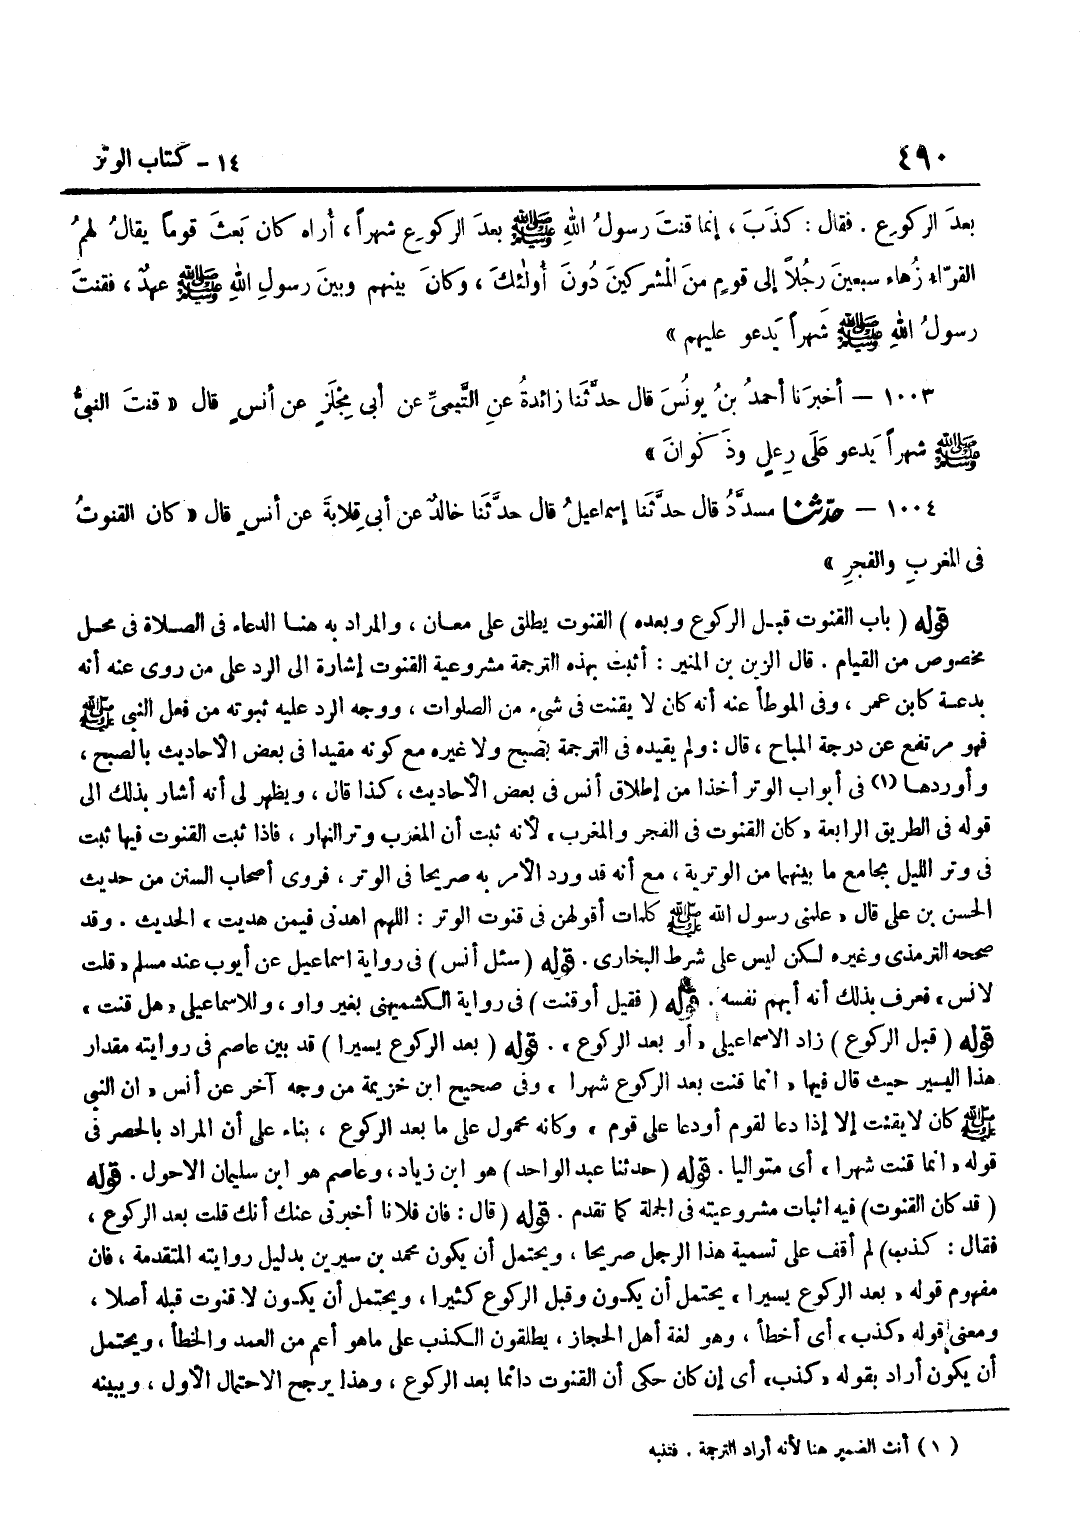 ٤٩٠
١٤ - كتاب الوتر
بعدَ الركوعِ . فقال : كذَبَ ، إنما قنتَ رسولُ اللهِ ﷺ بعدَ الركوعِ شهراً ، أُراه كان بَعثَ قوماً يقالُ لهمُ
القرّاء زُهاء سبعينَ رجُلاً إلى قومٍ منَ المشركينَ دُونَ أُولئكَ ، وكانَ بينهم وبينَ رسولِ اللهِ ﷺ عهدٌ ، فقنتَ
رسولُ اللهِ ﷺ شَهراً يَدعو عليهم »
١٠٠٣ – أخبرَنا أحمدُ بنُ يونُسَ قال حدَّثَنا زائدةُ عنِ التَّيميِّ عن أبى مِجْلَزٍ عن أنسٍ قال « قنتَ النبىُّ
ﷺ شهراً يَدعو عَلَى رِعلٍ وذَكوانَ »
١٠٠٤ – حدّثنا مسدَّدُ قال حدَّثَنا إسماعيلُ قال حدَّثَنا خالدٌ عن أبى قِلابةَ عن أنسٍ قال « كان القنوتُ
فى المغربِ والفجرِ »
قوله ( باب القنوت قبل الركوع وبعده ) القنوت يطلق على معان ، والمراد به هنا الدعاء فى الصلاة فى محل
مخصوص من القيام . قال الزين بن المنير : أثبت بهذه الترجمة مشروعية القنوت إشارة الى الرد على من روى عنه أنه
بدعة كابن عمر ، وفى الموطأ عنه أنه كان لا يقنت فى شىء من الصلوات ، ووجه الرد عليه ثبوته من فعل النبى ﷺ
فهو مرتفع عن درجة المباح ، قال : ولم يقيده فى الترجمة بصبح ولا غيره مع كونه مقيدا فى بعض الأحاديث بالصبح ،
وأوردها (١) فى أبواب الوتر أخذا من إطلاق أنس فى بعض الأحاديث ، كذا قال ، ويظهر لى أنه أشار بذلك الى
قوله فى الطريق الرابعة « كان القنوت فى الفجر والمغرب » لأنه ثبت أن المغرب وتر النهار ، فاذا ثبت القنوت فيها ثبت
فى وتر الليل بجامع ما بينهما من الوترية ، مع أنه قد ورد الأمر به صريحا فى الوتر ، فروى أصحاب السنن من حديث
الحسن بن على قال « علمنى رسول الله ﷺ كلمات أقولهن فى قنوت الوتر : اللهم اهدنى فيمن هديت » الحديث . وقد
صححه الترمذى وغيره لكن ليس على شرط البخارى . قوله ( سئل أنس ) فى رواية اسماعيل عن أيوب عند مسلم « قلت
لانس » فعرف بذلك أنه أبهم نفسه . قوله ( فقيل أوقنت ) فى رواية الكشميهنى بغير واو ، وللاسماعيلى « هل قنت »
قوله ( قبل الركوع ) زاد الاسماعيلى « أو بعد الركوع » . قوله ( بعد الركوع يسيرا ) قد بين عاصم فى روايته مقدار
هذا اليسير حيث قال فيها « انما قنت بعد الركوع شهرا » وفى صحيح ابن خزيمة من وجه آخر عن أنس « ان النبى
ﷺ كان لا يقنت إلا إذا دعا لقوم أو دعا على قوم » وكأنه محمول على ما بعد الركوع ، بناء على أن المراد بالحصر فى
قوله « انما قنت شهرا » أى متواليا . قوله ( حدثنا عبد الواحد ) هو ابن زياد ، وعاصم هو ابن سليمان الاحول . قوله
( قد كان القنوت ) فيه اثبات مشروعيته فى الجملة كما تقدم . قوله ( قال : فان فلانا أخبرنى عنك أنك قلت بعد الركوع ،
فقال : كذب ) لم أقف على تسمية هذا الرجل صريحا ، ويحتمل أن يكون محمد بن سيرين بدليل روايته المتقدمة ، فان
مفهوم قوله « بعد الركوع يسيرا » يحتمل أن يكون وقبل الركوع كثيرا ، ويحتمل أن يكون لا قنوت قبله أصلا ،
ومعنى قوله « كذب » أى أخطأ ، وهو لغة أهل الحجاز ، يطلقون الكذب على ماهو أعم من العمد والخطأ ، ويحتمل
أن يكون أراد بقوله « كذب » أى إن كان حكى أن القنوت دائما بعد الركوع ، وهذا يرجح الاحتمال الأول ، ويبينه
( ١ ) أنث الضمير هنا لأنه أراد الترجمة . فتنبه